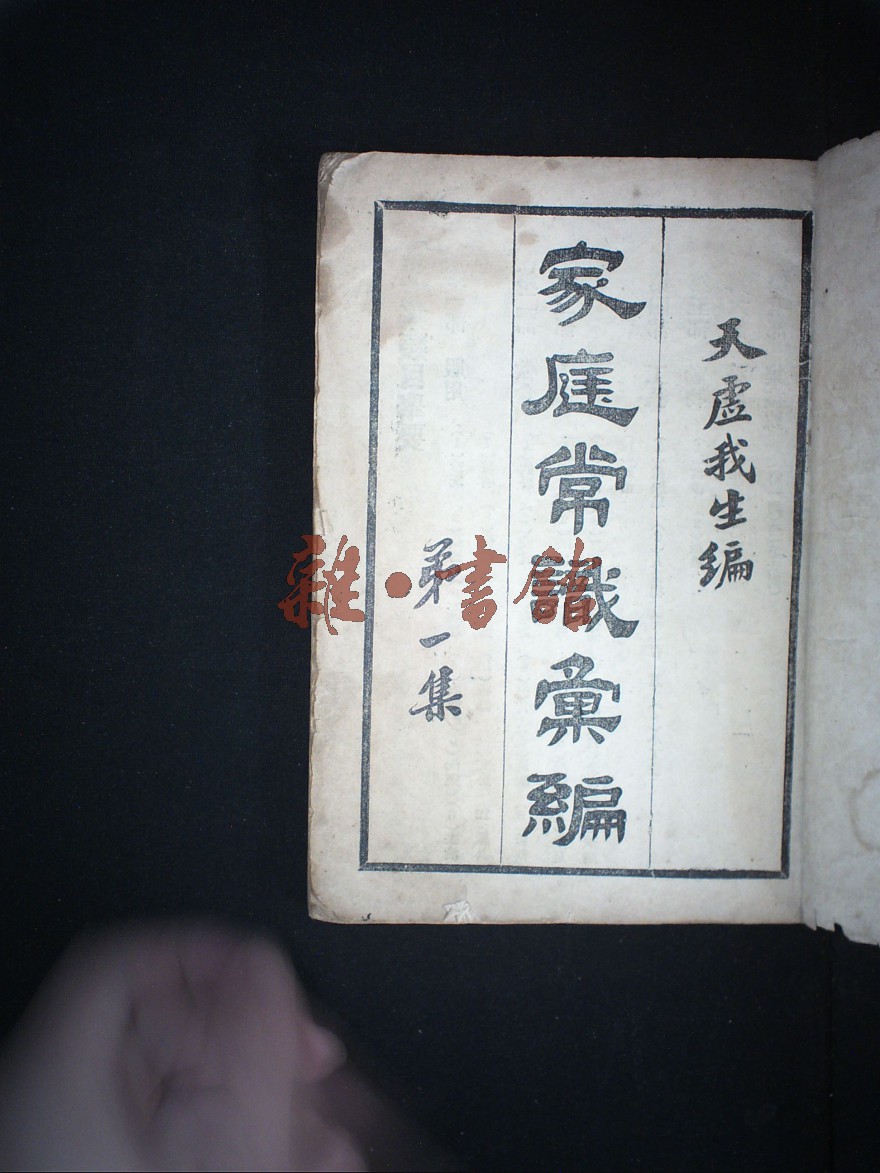 天虛我生編
家庭常識彙編
弟一集
雜·書館